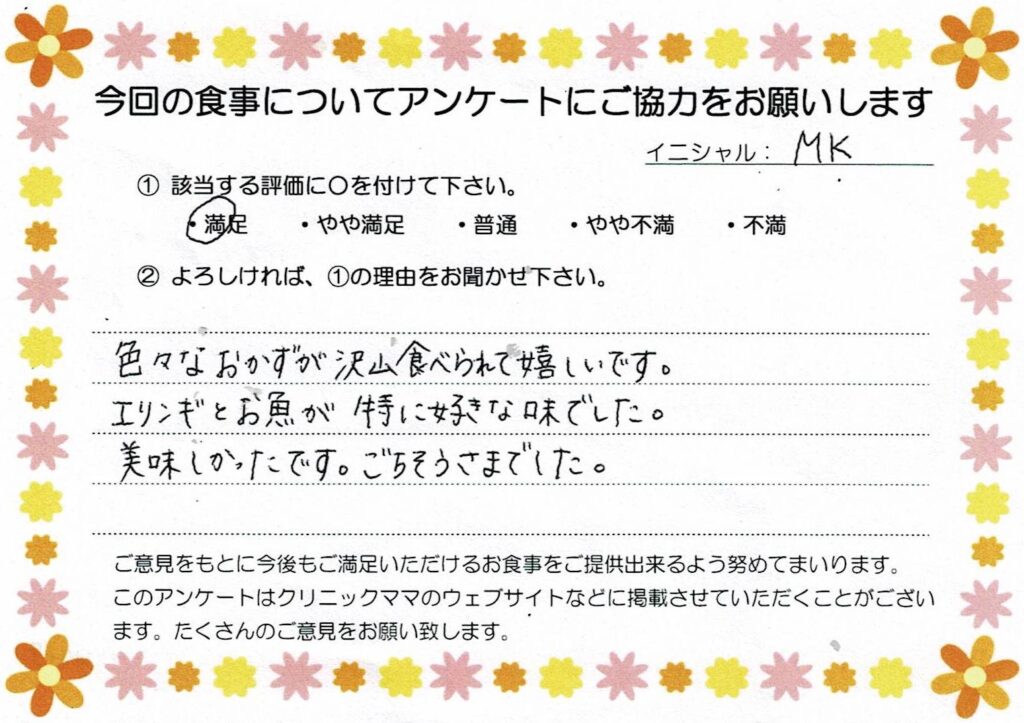 今回の食事についてアンケートにご協力をお願いします
イニシャル： MK
① 該当する評価に〇を付けて下さい。
・満足 ・やや満足 ・普通 ・やや不満 ・不満
② よろしければ、①の理由をお聞かせ下さい。
色々なおかずが沢山食べられて嬉しいです。
エリンギとお魚が特に好きな味でした。
美味しかったです。ごちそうさまでした。
ご意見をもとに今後もご満足いただけるお食事をご提供出来るよう努めてまいります。
このアンケートはクリニックママのウェブサイトなどに掲載させていただくことがござい
ます。たくさんのご意見をお願い致します。